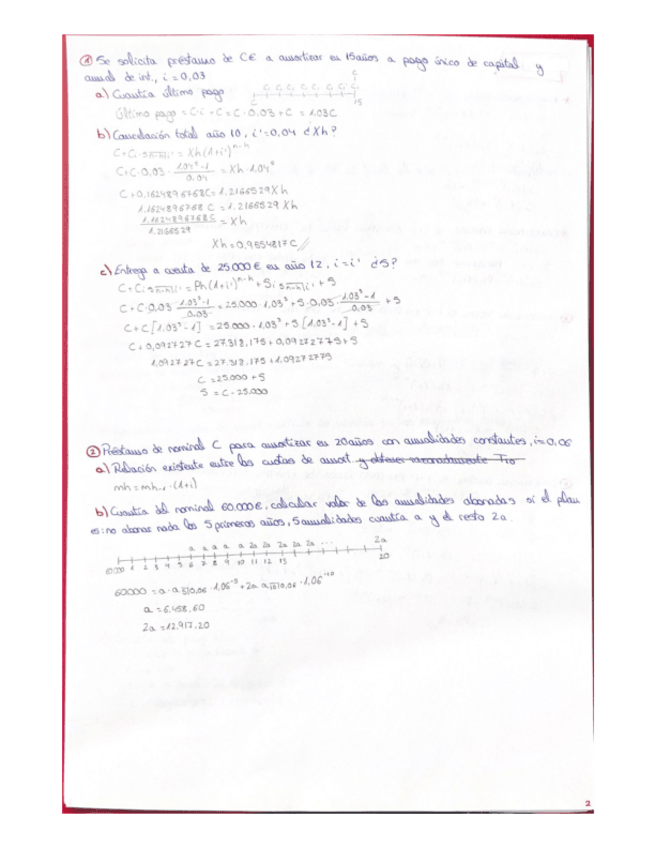 ① Se solicita préstamo de C€ a amortizar en 15 años a pago único de capital y
anual de int., i = 0,03
a) Cuantía último pago
Último pago = C·i + C = C·0.03 + C = 1.03C
b) Cancelación total año 10, i' = 0,04 ¿Xh?
C + Ci s n-h i' = Xh (1+i')^n-h
C + C·0,03 · 1.04⁵-1 / 0.04 = Xh · 1.04⁵
C + 0,1624896768C = 1.2166529Xh
1.1624896768 C = 1.2166529 Xh
1.1624896768C / 1.2166529 = Xh
Xh = 0,9554817C //
c) Entrega a cuenta de 25000€ en año 12, i = i' ¿S?
C + Ci s n-h i' = Ph (1+i')^n-h + Si s n-h i' + S
C + C·0.03 · 1.03³-1 / 0.03 = 25.000 · 1.03³ + S·0.03 · 1.03³-1 / 0.03 + S
C + C [1.03³-1] = 25000 · 1.03³ + S [1.03³-1] + S
C + 0,092727C = 27.318,175 + 0,092727S + S
C = 25.000 + S
S = C - 25.000
② Préstamo de nominal C para amortizar en 20 años con anualidades constantes, i = 0,06
a) Relación existente entre las cuotas de amort. y obtener razonadamente
mh = mh-1 · (1+i)
b) Cuantía del nominal 60.000€, calcular valor de las anualidades abonadas si el plan
es: no abonar nada los 5 primeros años, 5 anualidades cuantía a y el resto 2a.
a a a a a 2a 2a 2a 2a 2a ... 2a
60.000 1 2 3 4 5 6 7 8 9 10 11 12 13 20
60000 = a · a 5 0,06 · 1,06⁻⁵ + 2a · a 10 0,06 · 1,06⁻¹⁰
a = 6.458,60
2a = 12.917,20
2